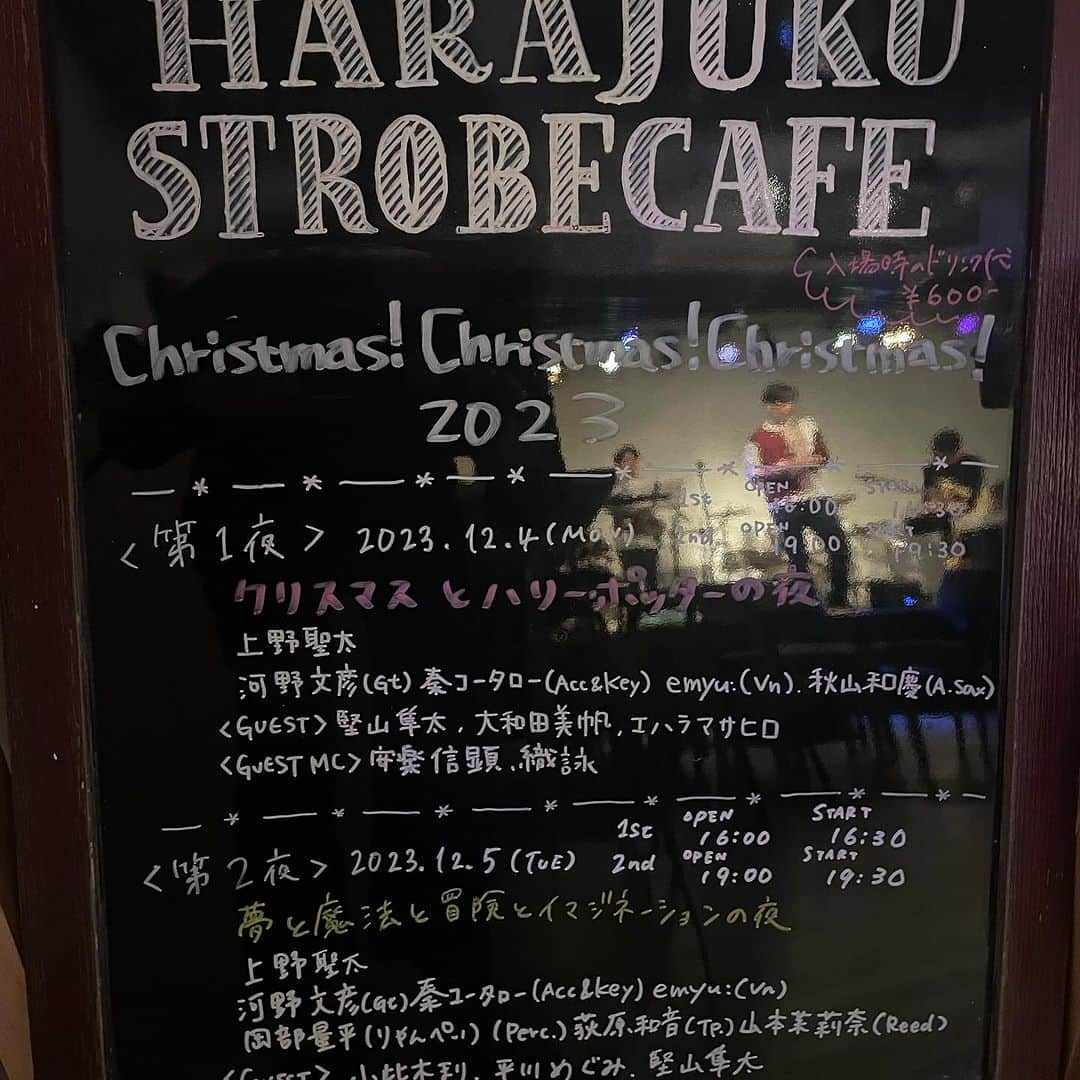 HARAJUKU
STROBECAFE
入場時のドリンク代
¥600-
Christmas! Christmas! Christmas!
2023
1st OPEN 16:00 START 16:30
<第1夜> 2023.12.4(MON) 2nd OPEN 19:00 START 19:30
クリスマスとハリーポッターの夜
上野聖太
河野文彦(Gt) 秦コータロー(Acc&Key) emyu:(Vn). 秋山和慶(A.Sax)
<GUEST> 堅山隼太. 大和田美帆. エハラマサヒロ
<GUEST MC> 安楽信顕. 織詠
1st OPEN 16:00 START 16:30
<第2夜> 2023.12.5(TUE) 2nd OPEN 19:00 START 19:30
夢と魔法と冒険とイマジネーションの夜
上野聖太
河野文彦(Gt) 秦コータロー(Acc&Key) emyu:(Vn)
岡部量平(りゃんぺい) (Perc.) 荻原和音(Tp.) 山本茉莉奈(Reed)
<GUEST> 小此木利. 平川めぐみ. 堅山隼太